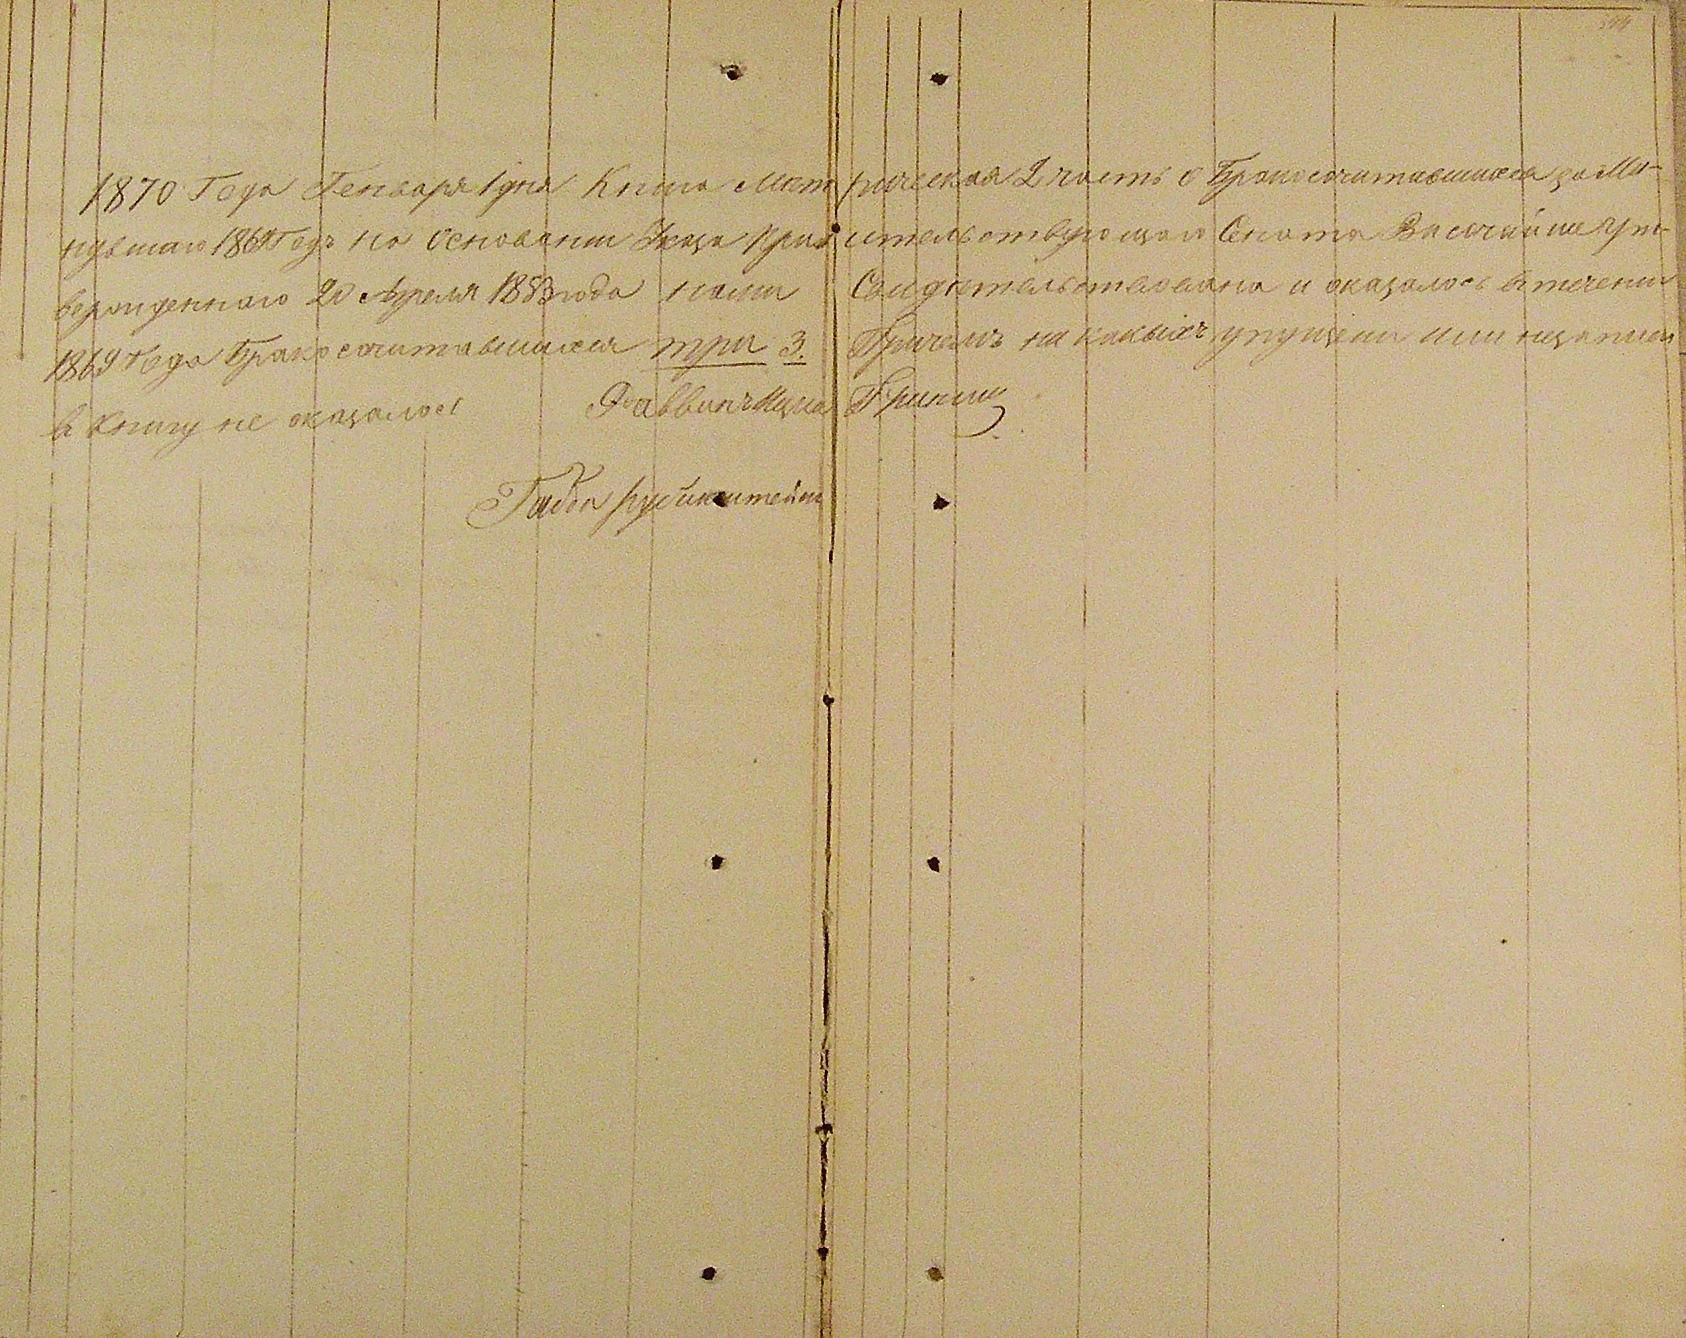 1870 Года Генваря 1 дня Книга Метрическая 2 часть о Бракосочитавшихся за Ми-
нувшаго 1869 Годъ на Основании Указа Правительствующаго Сената Височайше утве-
вержденнаго 20 Апреля 1853 года нами Свидетельствована и оказалось в течении
1869 Года Бракосочитавшихся три 3. Причемъ ни какыхъ упущени или
в книгу не оказалось Раввин Ицка
Габа Рубинштейн